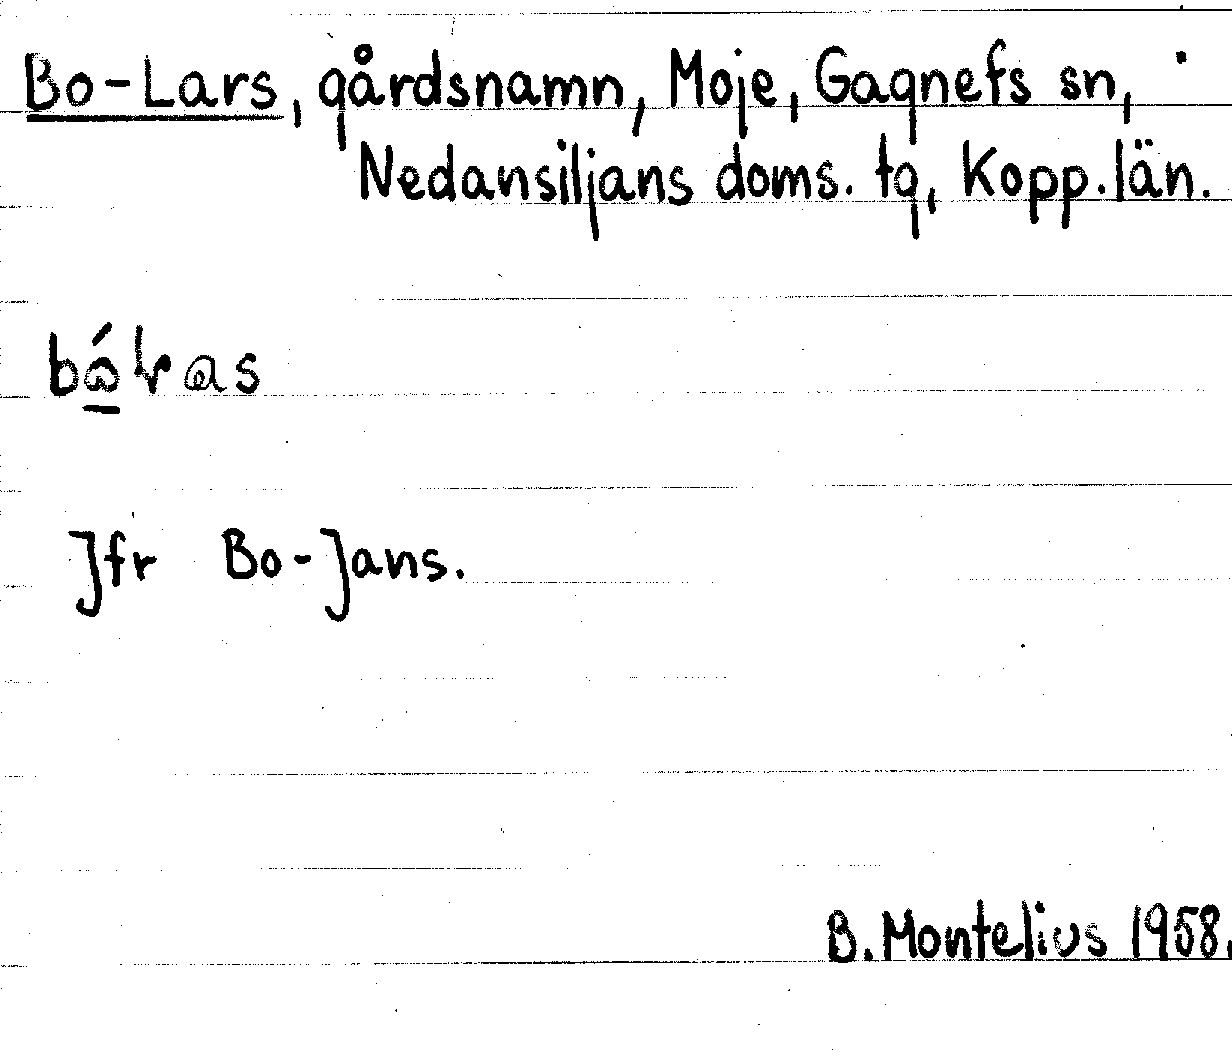 Bo-Lars, gårdsnamn, Moje, Gagnefs sn,
Nedansiljans doms. tg, Kopp.län.
Jfr Bo-Jans.
B. Montelius 1958.